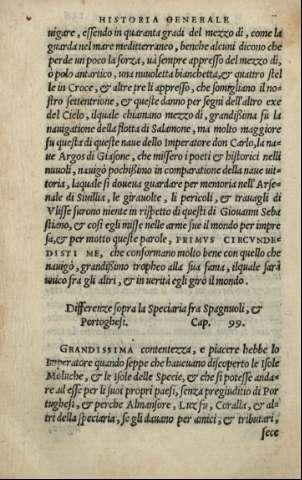 HISTORIA GENERALE
uigare, essendo in quaranta gradi del mezzo di, come la
guarda nel mare mediterraneo, benche alcuni dicono che
perde un poco la forza, uà sempre appresso del mezzo di,
ò polo antartico, una nuuoletta bianchetta, & quattro stel
le in Croce, & altre tre li appresso, che somigliano il no-
stro settentrione, & queste danno per segni dell'altro exe
del Cielo, ilquale chiamano mezzo di, grandissima fù la
nauigatione della flotta di Salamone, ma molto maggiore
fu questa di queste naue dello Imperatore don Carlo, la na-
ue Argos di Giasone, che missero i poeti & historici nelli
nuuoli, nauigò pochissimo in comparatione della naue uit-
toria, laquale si doueua guardare per memoria nell'Arse-
nale di Siuilia, le girauolte, li pericoli, & trauagli di
Vlisse furono niente in rispetto di questi di Giouanni Seba
stiano, & cosi egli misse nelle arme sue il mondo per impre
sa, & per motto queste parole, PRIMVS CIRCVNDE-
DISTI ME, che conformano molto bene con quello che
nauigò, grandissimo tropheo alla sua fama, ilquale sarà
unico fra gli altri, & in uerità egli girò il mondo.
Differenze sopra la Speciaria fra Spagnuoli, &
Portoghesi. Cap. 99.
GRANDISSIMA contentezza, e piacere hebbe lo
Imperatore quando seppe che haueuano discoperto le Isole
Moluche, & le Isole delle Specie, & che si potesse anda-
re ad esse per li suoi propri paesi, senza pregiuditio di Por
tughesi, & perche Almansore, Luzfu, Coralla, & al-
tri della speciaria, se gli dauano per amici, & tributari,
fece